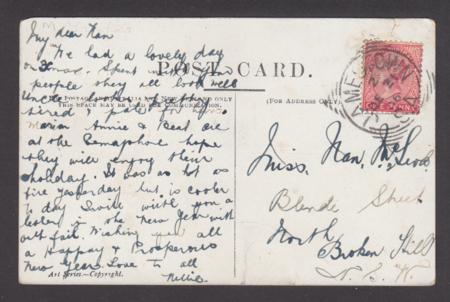 My dear Nan
We had a lovely day
on Xmas. Spent with your
people they all look well
POST CARD.
THIS SPACE MAY BE USED FOR COMMUNICATION
(For Address Only.)
JAMESTOWN
Maria Annie & Beat are
at the Semaphore hope
they will enjoy their
holiday. It was as hot as
fire yesterday but is cooler
to day I will write you a
letter in the New Year with
out fail. Wishing you all
a Happy & Prosperous
New Year. Love to all
Nellie.
Art Series.—Copyright.
Miss. Nan. McLeod
Blende Street
North
Broken Hill
N. S. W.